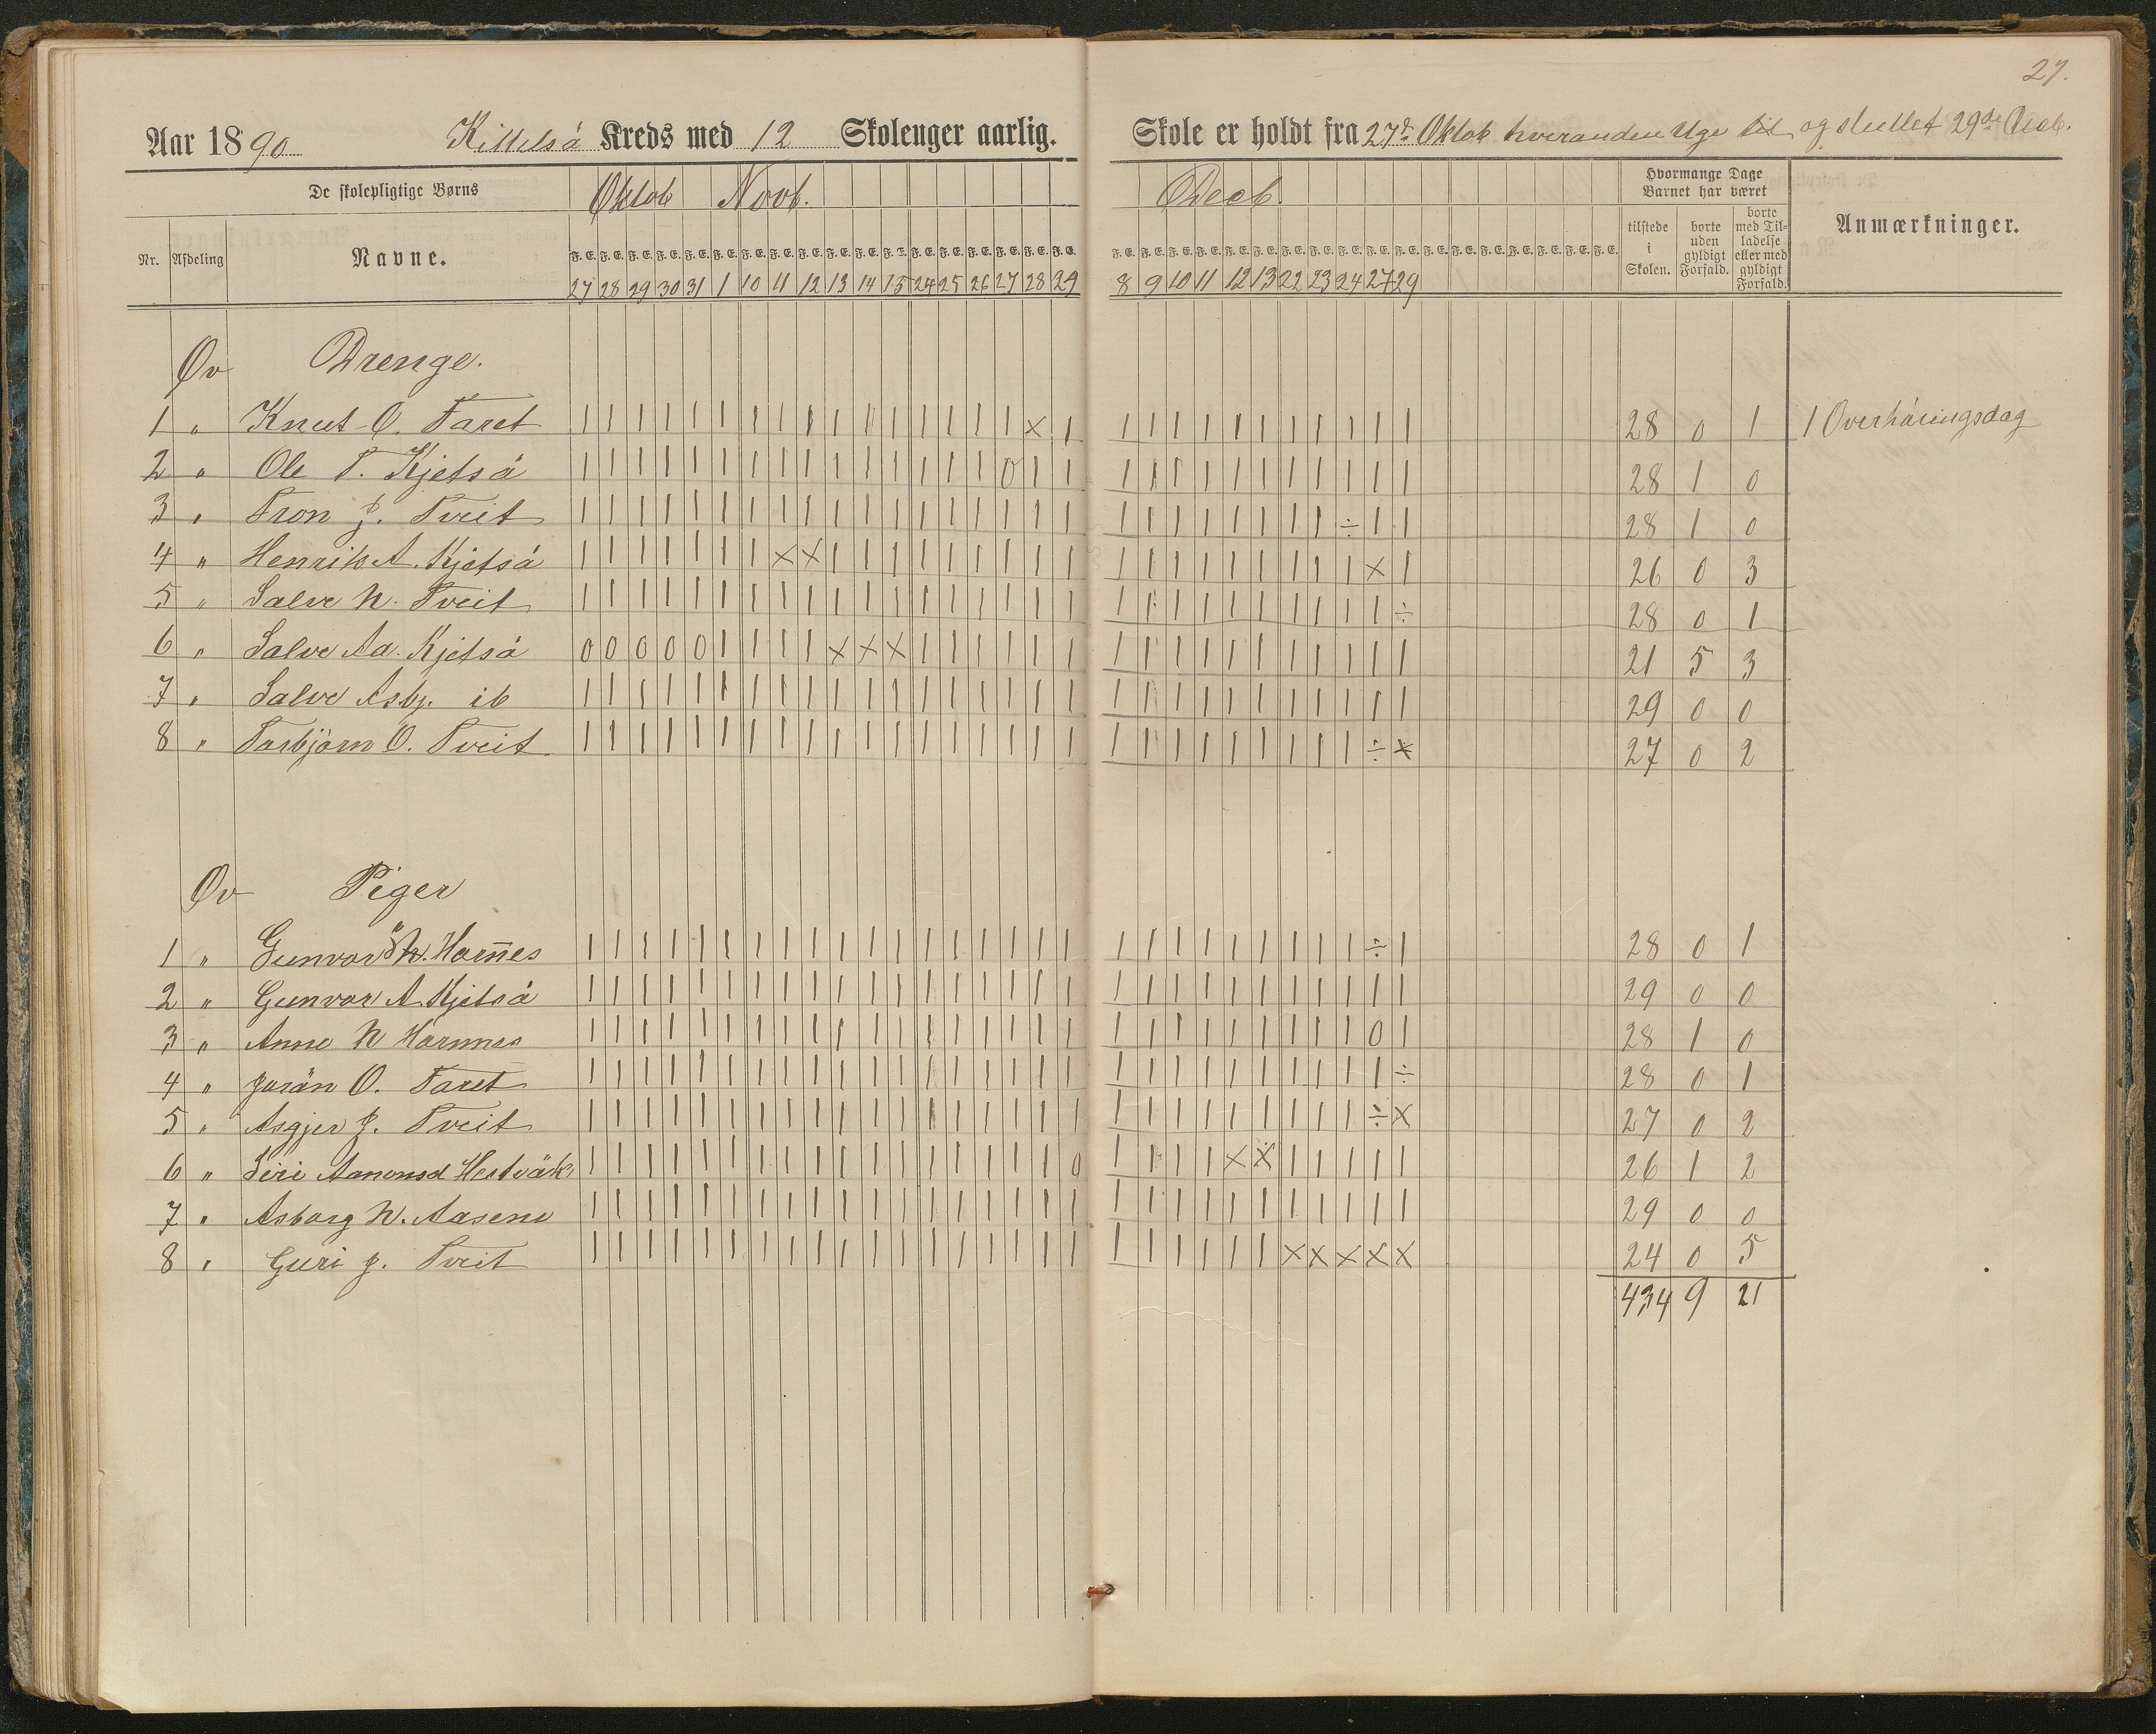 27.
Aar 1890 Kittelså Kreds med 12 Skoleuger aarlig. Skole er holdt fra 27de Oktob hveranden Uge til og sluttet 29de Decb.
De skolepligtige Børns Oktob Novb. Decb. Hvormange Dage Barnet har været
Nr. Afdeling Navne. tilstede i Skolen. borte uden gyldigt Forfald. borte med Tilladelse eller med gyldigt Forfald. Anmærkninger.
F. E. F. E. F. E. F. E. F. E. F. E. F. E. F. E. F. E. F. E. F. E. F. T. F. E. F. E. F. E. F. E. F. E. F. E. F. E. F. E. F. E. F. E. F. E. F. E. F. E. F. E. F. E. F. E. F. E. F. E. F. E. F. E. F. E. F. E. F. E. F. E.
27 28 29 30 31 1 10 11 12 13 14 15 24 25 26 27 28 29 8 9 10 11 12 13 22 23 24 27 29
Øv Drenge.
1 " Knut O. Faret | | | | | | | | | | | | | | | | × | | | | | | | | | | | | 28 0 1 1 Overhöringsdag
2 " Ole T. Kjetså | | | | | | | | | | | | | | | 0 | | | | | | | | | | | | | 28 1 0
3 " Tron J. Tveit | | | | | | | | | | | | | | | | | | | | | | | | | | ÷ | | 28 1 0
4 " Henrik A. Kjetså | | | | | | | × × | | | | | | | | | | | | | | | | | | × | 26 0 3
5 " Salve N. Tveit | | | | | | | | | | | | | | | | | | | | | | | | | | | | ÷ 28 0 1
6 " Salve Aa. Kjetså 0 0 0 0 0 | | | | × × × | | | | | | | | | | | | | | | | | 21 5 3
7 " Salve Asbj. ib | | | | | | | | | | | | | | | | | | | | | | | | | | | | | 29 0 0
8 " Torbjörn O. Tveit | | | | | | | | | | | | | | | | | | | | | | | | | | | ÷ × 27 0 2
Øv Piger
1 " Gunvor N. Harn̅es | | | | | | | | | | | | | | | | | | | | | | | | | | | ÷ | 28 0 1
2 " Gunvor A. Kjetså | | | | | | | | | | | | | | | | | | | | | | | | | | | | | 29 0 0
3 " Anne N Harnnes | | | | | | | | | | | | | | | | | | | | | | | | | | | 0 | 28 1 0
4 " Jorän O. Faret | | | | | | | | | | | | | | | | | | | | | | | | | | | | ÷ 28 0 1
5 " Asgjer J. Tveit | | | | | | | | | | | | | | | | | | | | | | | | | | | ÷ × 27 0 2
6 " Siri Aanonsd Hestväk | | | | | | | | | | | | | | | | | 0 | | | | × × | | | | | 26 1 2
7 " Asborg N. Aasene | | | | | | | | | | | | | | | | | | | | | | | | | | | | | 29 0 0
8 " Guri J. Tveit | | | | | | | | | | | | | | | | | | | | | | | | × × × × × 24 0 5
434 9 21